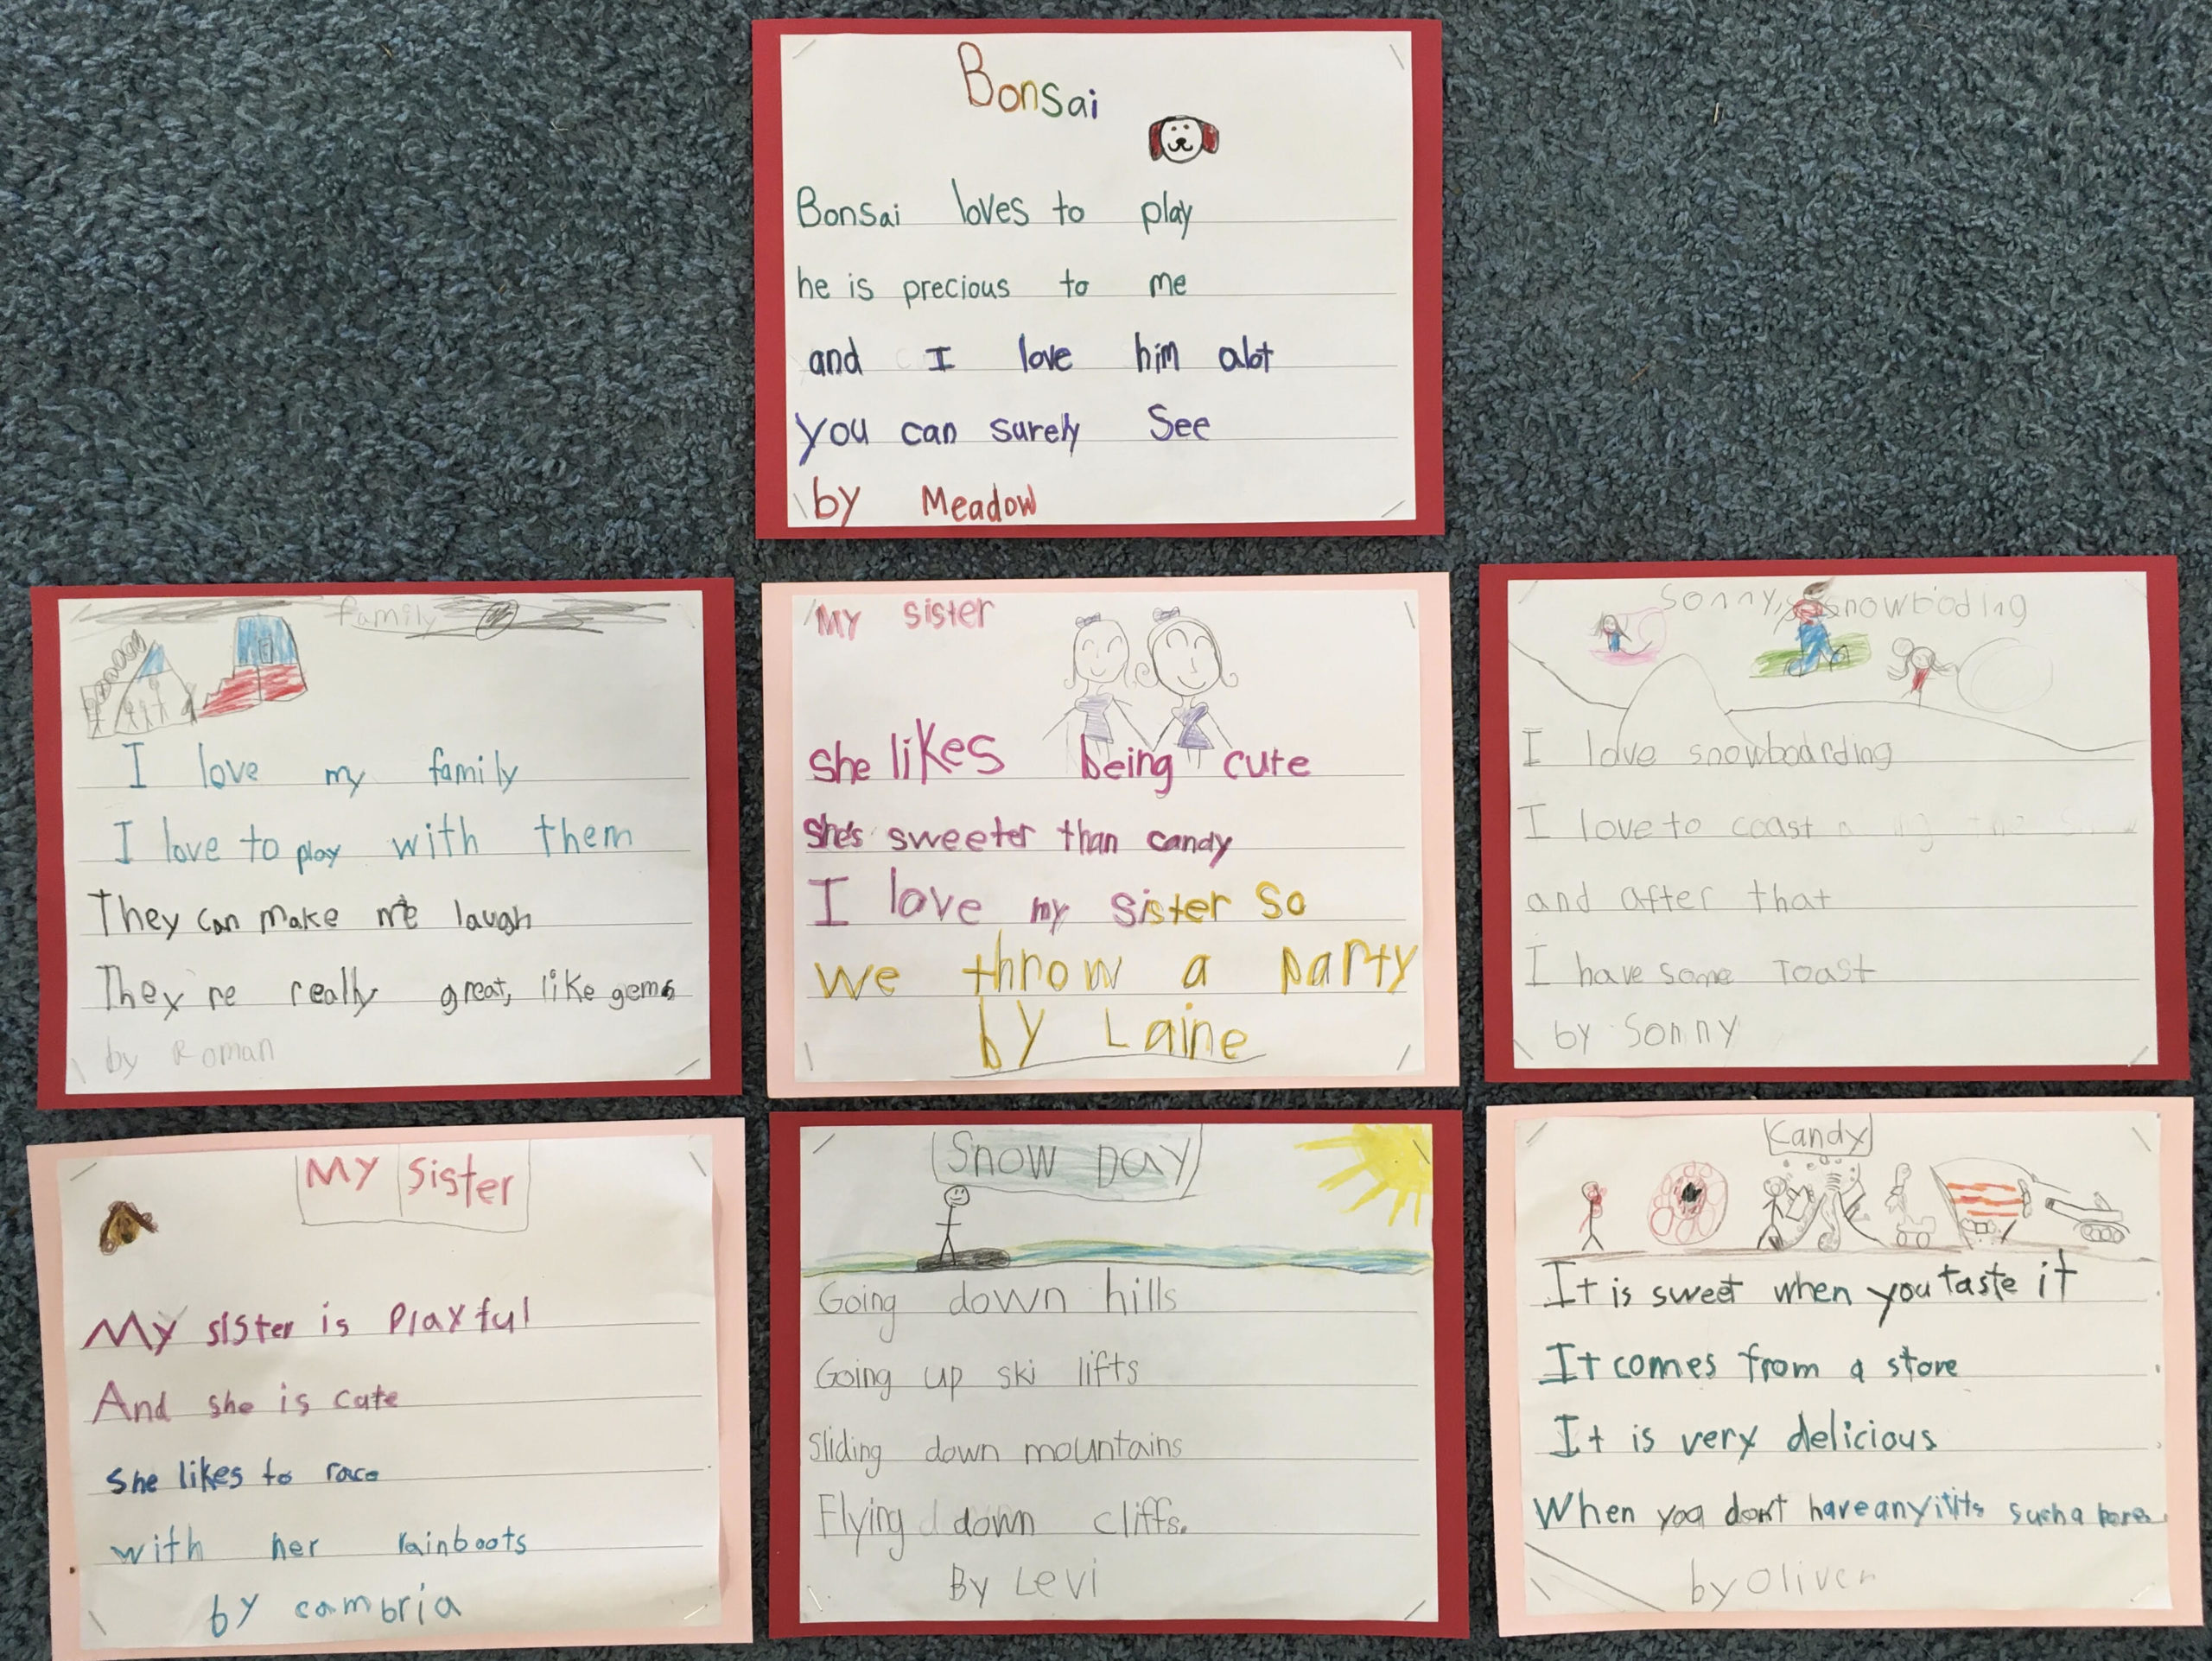 Bonsai
Bonsai loves to play
he is precious to me
and I love him alot
you can surely See
by Meadow
family
I love my family
I love to play with them
They can make me laugh
They re really great, like gems
by Roman
My sister
she likes being cute
she's sweeter than candy
I love my sister so
we throw a party
by Laine
Sonny's snowboding
I love snowboarding
I love to coast
and after that
I have some Toast
by Sonny
My sister
My sister is Playful
And she is cute
she likes to race
with her rainboots
by cambria
Snow Day
Going down hills
Going up ski lifts
Sliding down mountains
Flying down cliffs.
By Levi
Kandy
It is sweet when you taste it
It comes from a store
It is very delicious
When you don't have any it
by Oliver